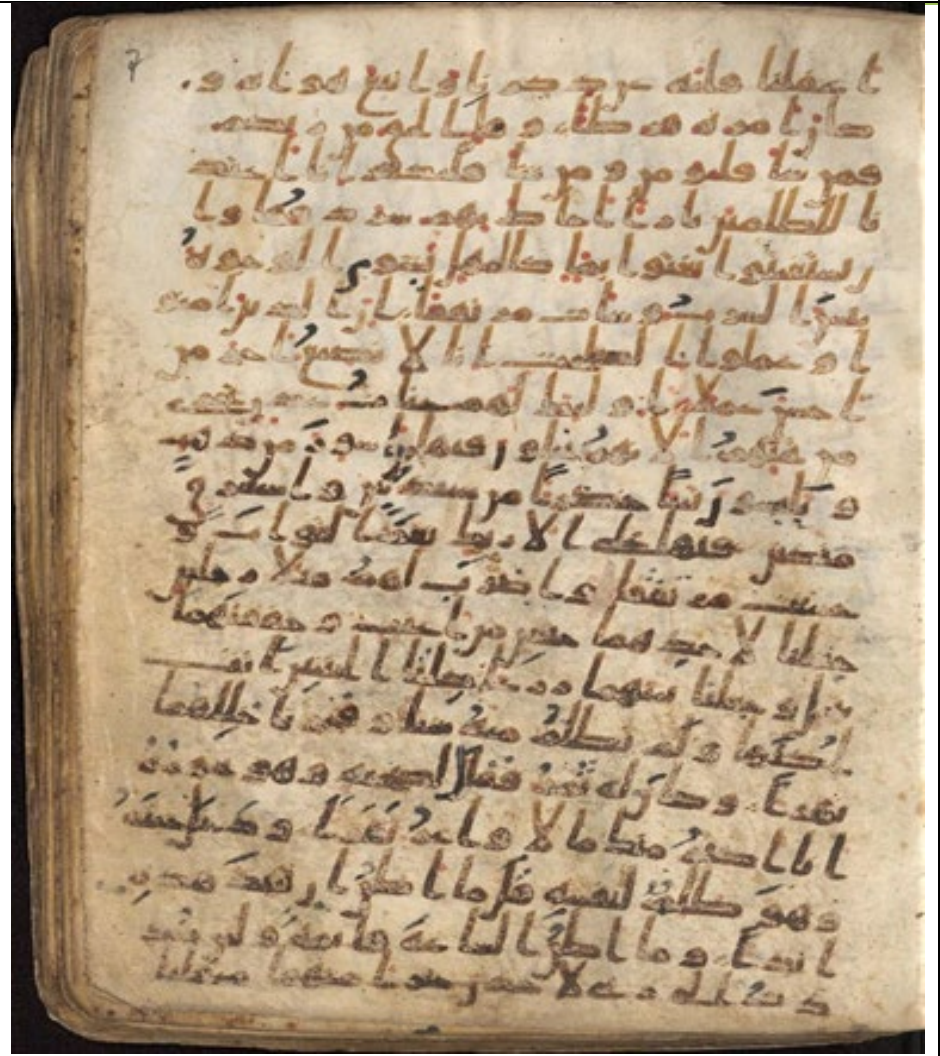 اغفلنا قلبه عن ذكرنا واتبع هويه و
كان امره فرطا وقل الحق من ربكم
فمن شا فليومن ومن شا فليكفر انا اعتد
نا للظلمين نارا احاط بهم سرادقها وا
ن يستغيثوا يغاثوا بما كالمهل يشوي الوجوه
بئس الشراب وسات مرتفقا ان الذين امنو
ا وعملوا الصلحت انا لا نضيع اجر من
احسن عملا اوليك لهم جنت عدن تجري
من تحتهم الانهر يحلون فيها من اساور من ذهب
ويلبسون ثيابا خضرا من سندس واستبرق
متكين فيها على الارايك نعم الثواب و
حسنت مرتفقا واضرب لهم مثلا رجلين
جعلنا لاحدهما جنتين من اعنب وحففنهما
بنخل وجعلنا بينهما زرعا كلتا الجنتين اتت
اكلها ولم تظلم منه شيا وفجرنا خللهما
نهرا وكان له ثمر فقال لصحبه وهو يحوره
انا اكثر منك مالا واعز نفرا ودخل جنته
وهو ظلم لنفسه قال ما اظن ان تبيد هذه
ابدا وما اظن الساعة قائمة ولئن ردد
ت الى ربي لاجدن خيرا منها منقلبا